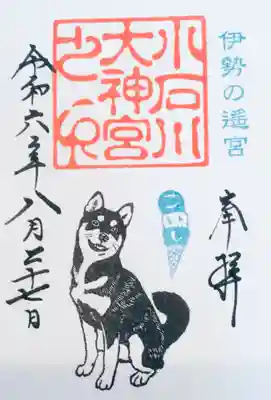 伊勢の遙宮
奉拝
小石川
大神宮
之印
令和六年八月二十七日